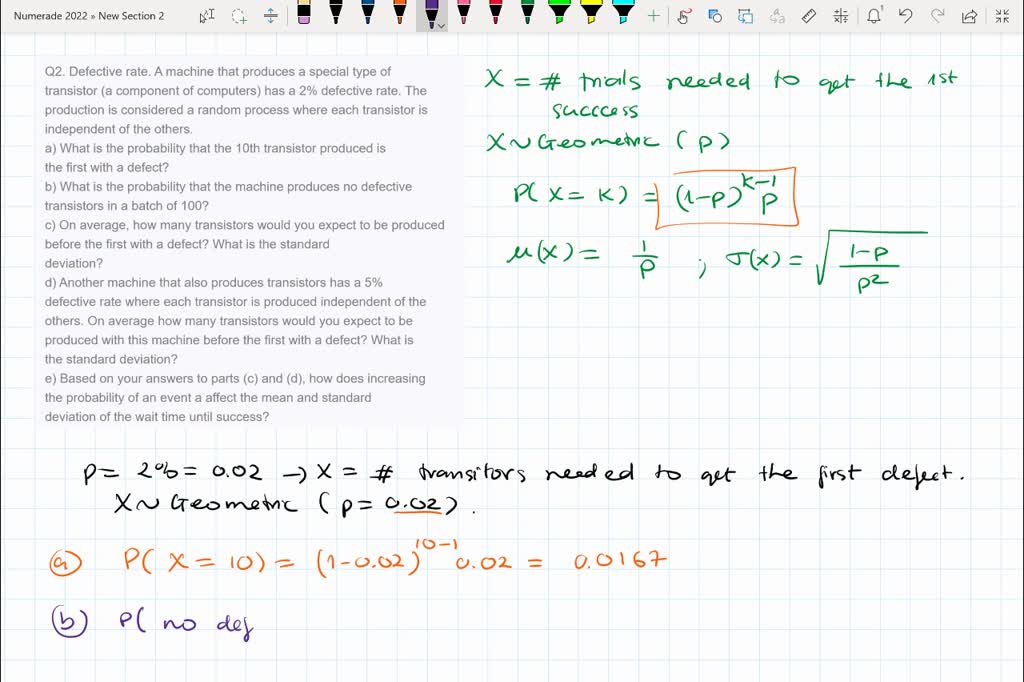 Numerade 2022 » New Section 2
Q2. Defective rate. A machine that produces a special type of
transistor (a component of computers) has a 2% defective rate. The
production is considered a random process where each transistor is
independent of the others.
a) What is the probability that the 10th transistor produced is
the first with a defect?
b) What is the probability that the machine produces no defective
transistors in a batch of 100?
c) On average, how many transistors would you expect to be produced
before the first with a defect? What is the standard
deviation?
d) Another machine that also produces transistors has a 5%
defective rate where each transistor is produced independent of the
others. On average how many transistors would you expect to be
produced with this machine before the first with a defect? What is
the standard deviation?
e) Based on your answers to parts (c) and (d), how does increasing
the probability of an event a affect the mean and standard
deviation of the wait time until success?
X = # trials needed to get the 1st
succcess
X ~ Geometric (p)
P(X = K) = (1-p)^{K-1} p
μ(x) = 1/p ; σ(x) = √((1-p)/p²)
p = 2% = 0.02 → X = # transitors needed to get the first defect.
X ~ Geometric (p = 0.02).
(a) P(X = 10) = (1-0.02)^{10-1} 0.02 = 0.0167
(b) P( no def